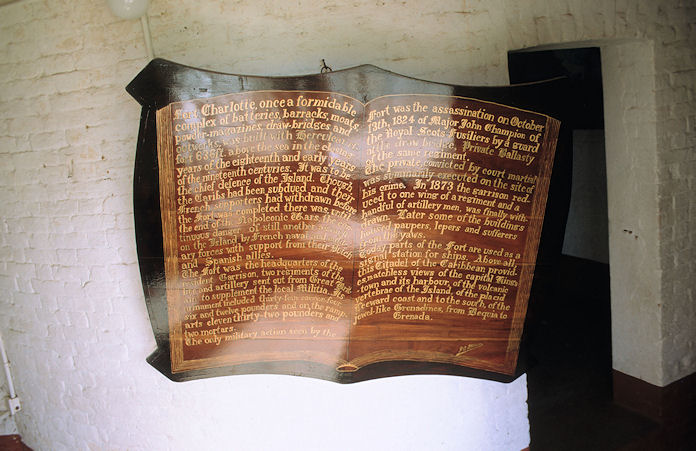 Fort Charlotte, once a formidable
complex of batteries, barracks, moats,
powder-magazines, draw-bridges and
outworks, was built with Herculean
fort 636 ft above the sea in the closing
years of the eighteenth and early years
of the nineteenth centuries. It was to be
the chief defence of the Island. Though
the Caribs had been subdued and their
French supporters had withdrawn before
the Fort was completed there was, until
the end of the Napoleonic Wars, the con-
tinuous danger of still another
on the Island by French naval and
ary forces with support from their
and Spanish allies.
The Fort was the headquarters of the
resident Garrison, two regiments of
and artillery sent out from Great
ain to supplement the local Militia. Its
armament included thirty-four cannon-four
six and twelve pounders and on the ramp-
arts eleven thirty-two pounders and
two mortars.
The only military action seen by the
Fort was the assassination on October
13th, 1824 of Major John Champion of
the Royal Scots Fusiliers by a guard
of the draw bridge, Private Ballasty
of the same regiment.
The private, convicted by court martial
was summarily executed on the site of
his crime. In 1873 the garrison red-
uced to one wing of a regiment and a
handful of artillery men, was finally with-
drawn. Later some of the buildings
housed paupers, lepers and sufferers
from the yaws.
Today parts of the Fort are used as a
signal station for ships. Above all,
this Citadel of the Caribbean provid-
es matchless views of the capital Kings-
town and its harbour, of the volcanic
vertebrae of the Island, of the placid
Leeward coast and to the south, of the
jewel-like Grenadines, from Bequia to
Grenada.